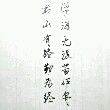 学海无涯苦作舟
书山有路勤为径